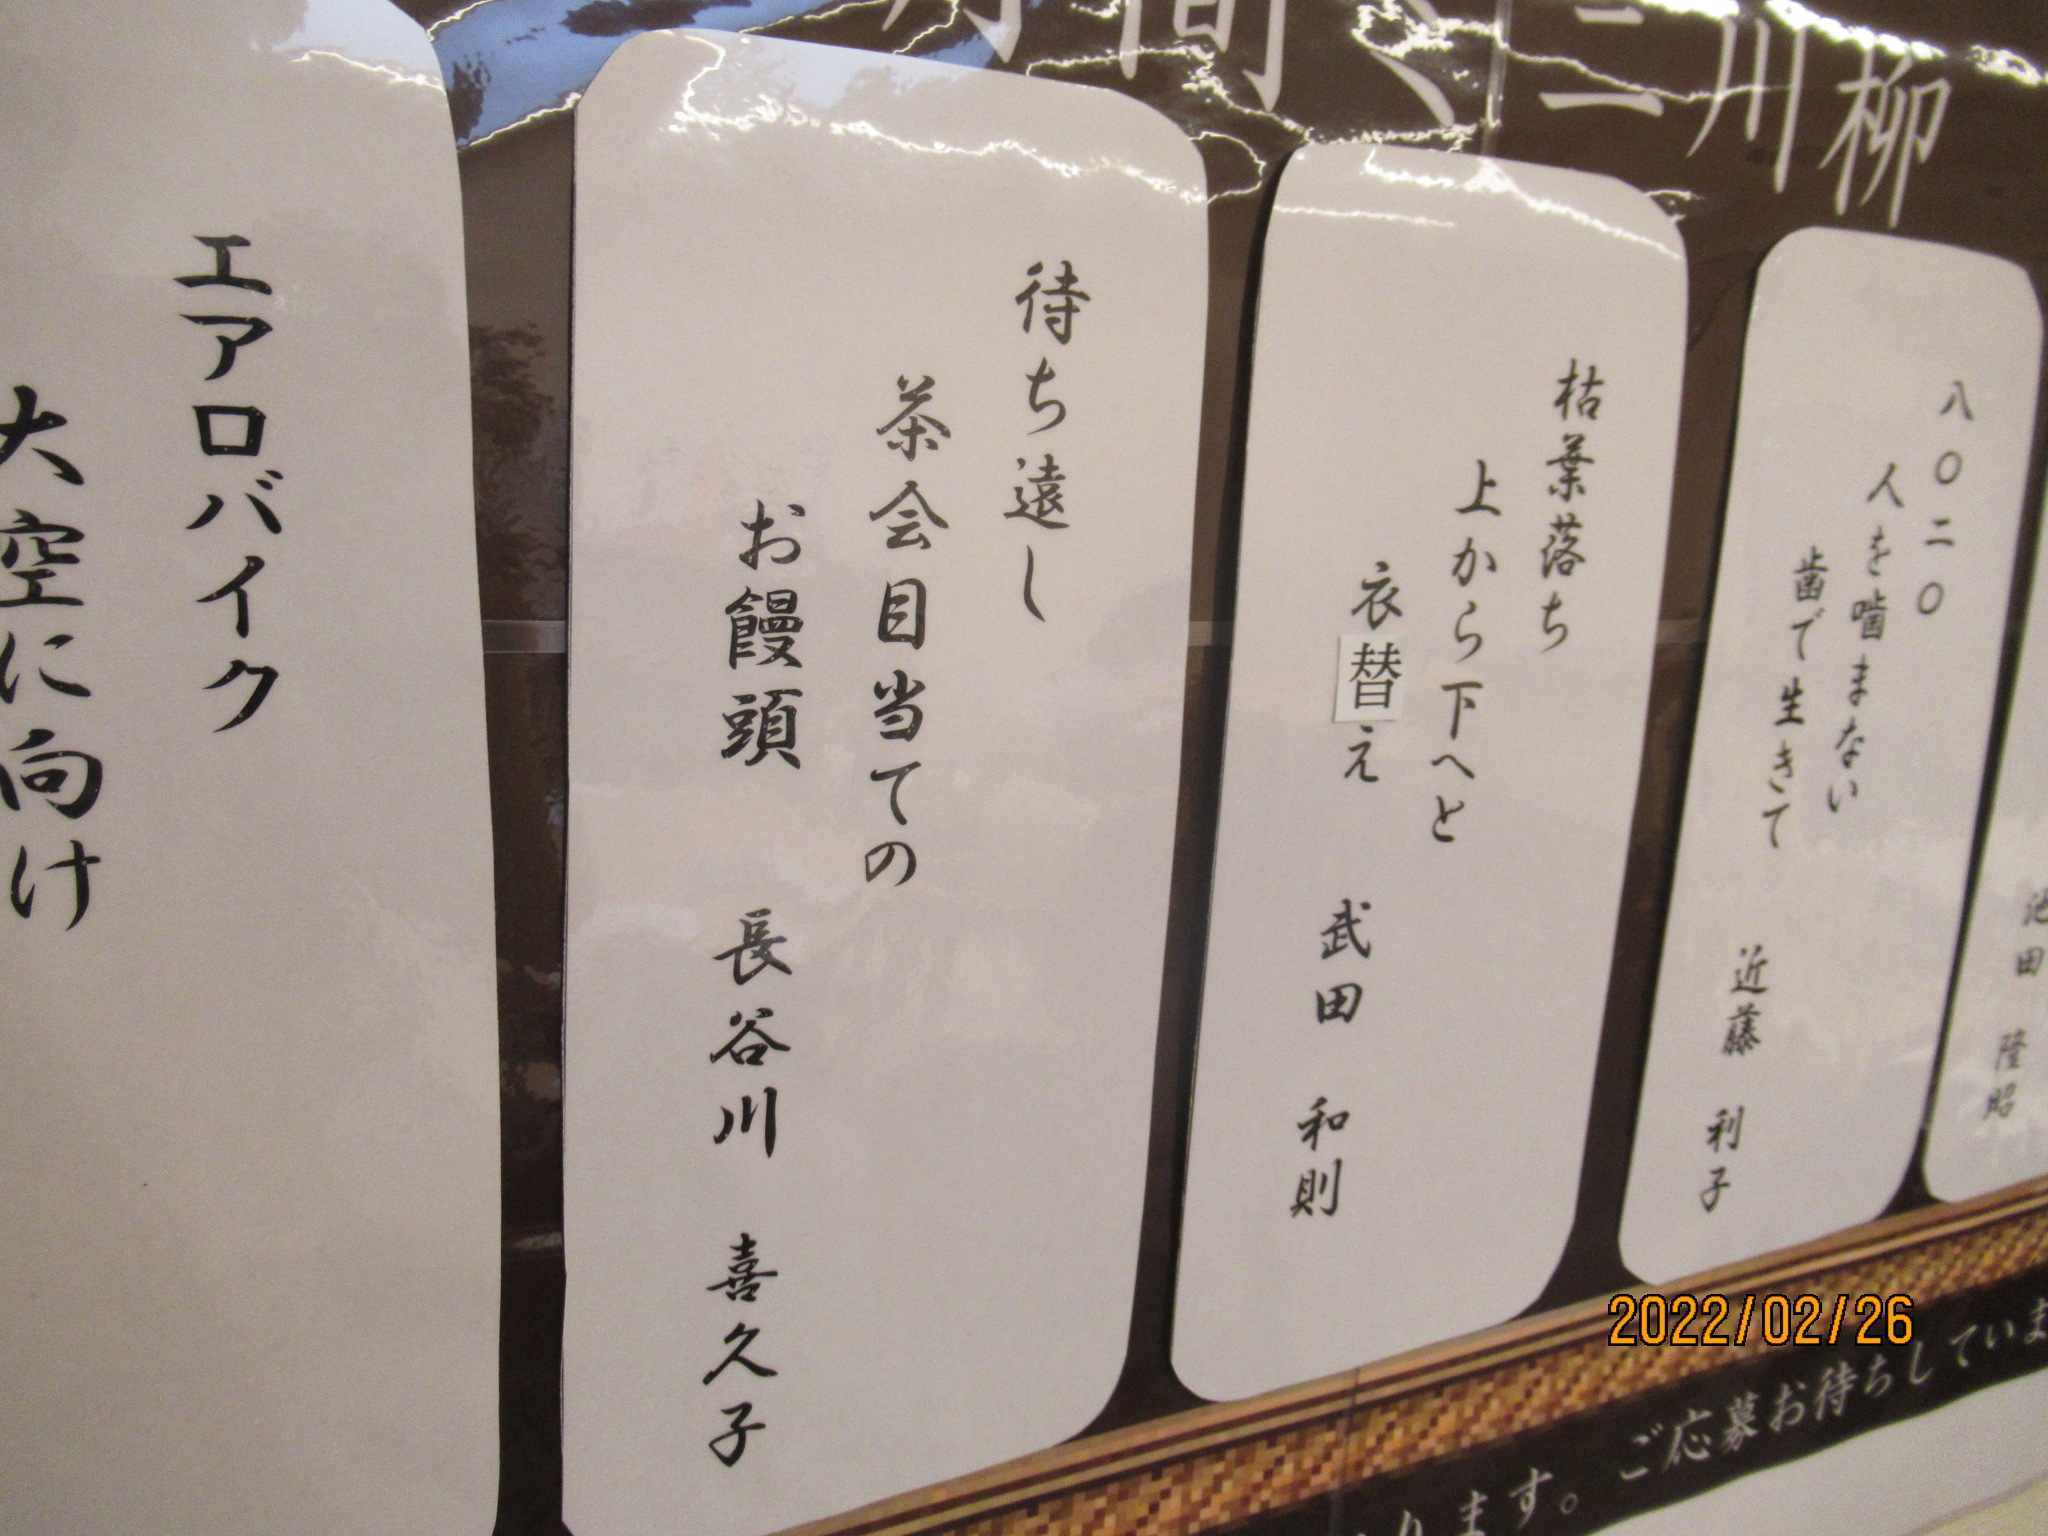 間 ミニ川柳
池田 隆昭
八〇二〇
人を噛まない
歯で生きて
近藤 利子
枯葉落ち
上から下へと
衣替え
武田 和則
待ち遠し
茶会目当ての
お饅頭
長谷川 喜久子
エアロバイク
大空に向け
ります。ご応募お待ちしていま
2022/02/26